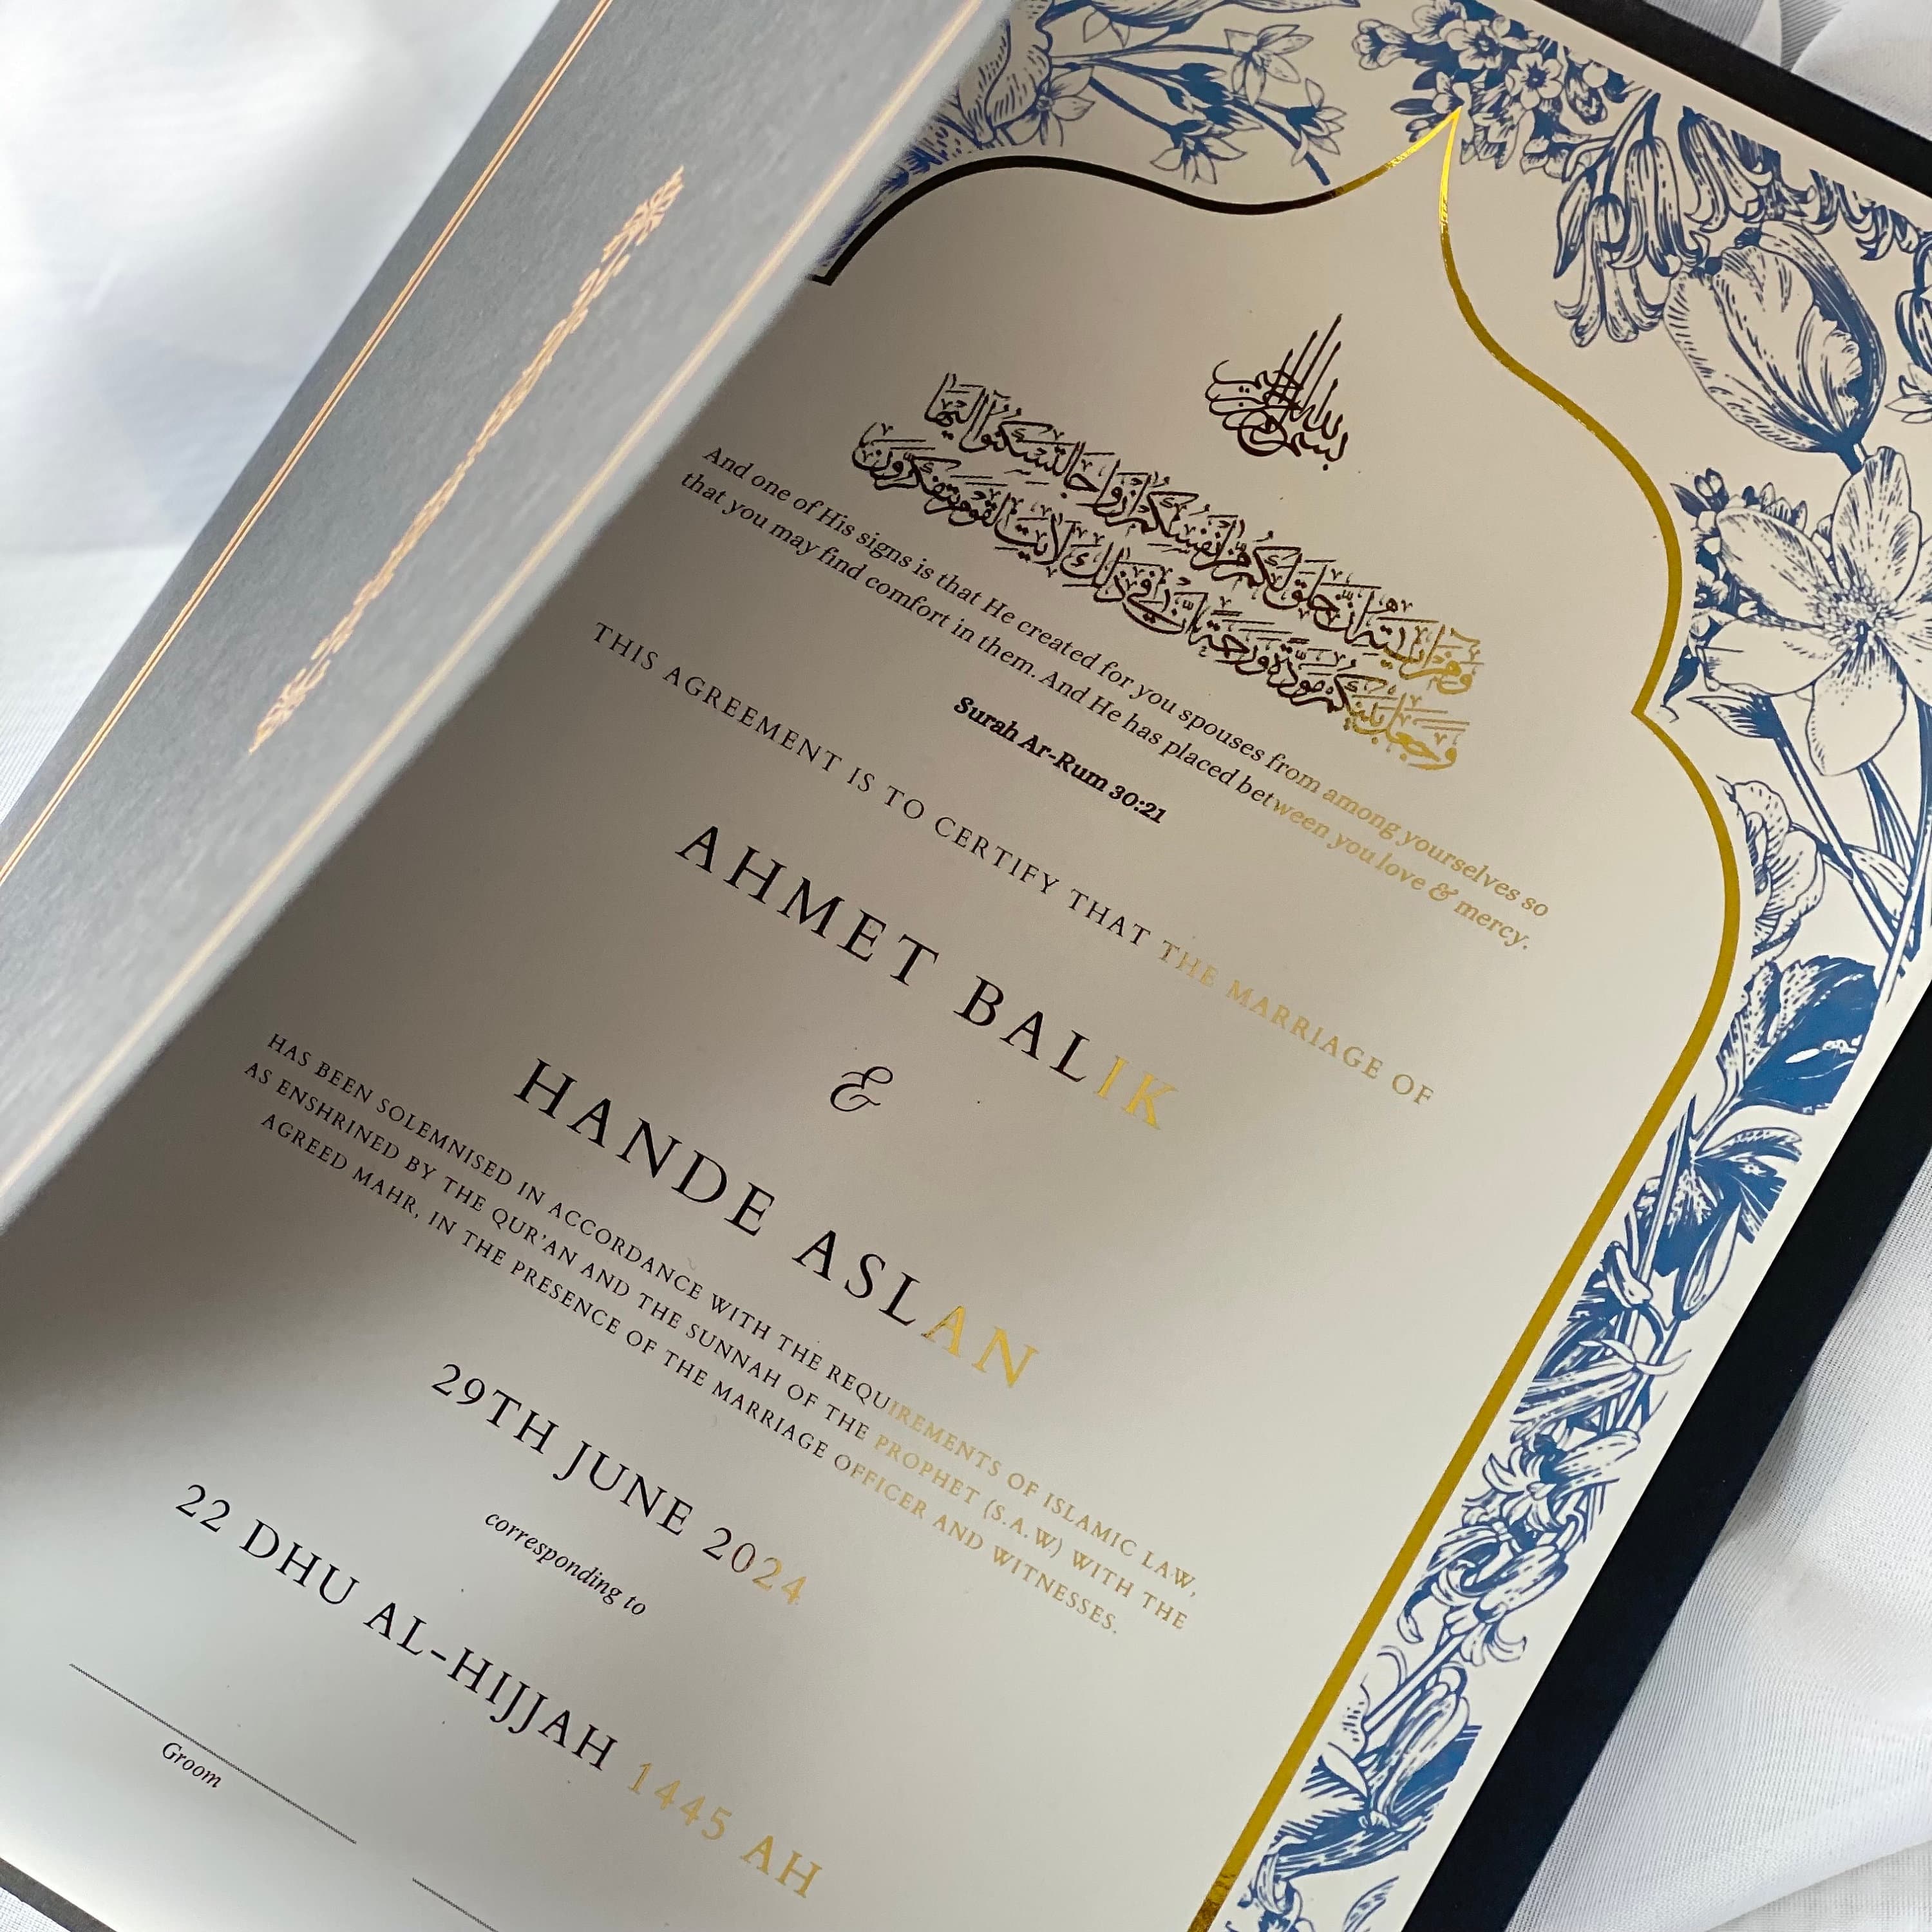 بسم الله الرحمن الرحيم
ومن آيته أن خلق لكم من أنفسكم أزواجا لتسكنوا إليها
وجعل بينكم مودة ورحمة إن في ذلك لآيت لقوم يتفكرون
And one of His signs is that He created for you spouses from among yourselves so
that you may find comfort in them. And He has placed between you love & mercy.
Surah Ar-Rum 30:21
THIS AGREEMENT IS TO CERTIFY THAT THE MARRIAGE OF
AHMET BALIK
&
HANDE ASLAN
HAS BEEN SOLEMNISED IN ACCORDANCE WITH THE REQUIREMENTS OF ISLAMIC LAW,
AS ENSHRINED BY THE QUR'AN AND THE SUNNAH OF THE PROPHET (S.A.W) WITH THE
AGREED MAHR, IN THE PRESENCE OF THE MARRIAGE OFFICER AND WITNESSES.
29TH JUNE 2024
corresponding to
22 DHU AL-HIJJAH 1445 AH
Groom